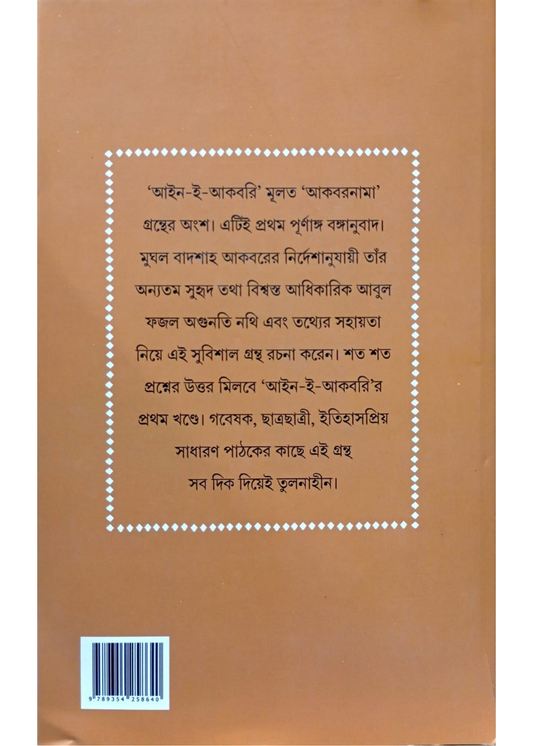 ‘আইন-ই-আকবরি’ মূলত ‘আকবরনামা’
গ্রন্থের অংশ। এটিই প্রথম পূর্ণাঙ্গ বঙ্গানুবাদ।
মুঘল বাদশাহ আকবরের নির্দেশানুযায়ী তাঁর
অন্যতম সুহৃদ তথা বিশ্বস্ত আধিকারিক আবুল
ফজল অগুনতি নথি এবং তথ্যের সহায়তা
নিয়ে এই সুবিশাল গ্রন্থ রচনা করেন। শত শত
প্রশ্নের উত্তর মিলবে ‘আইন-ই-আকবরি’র
প্রথম খণ্ডে। গবেষক, ছাত্রছাত্রী, ইতিহাসপ্রিয়
সাধারণ পাঠকের কাছে এই গ্রন্থ
সব দিক দিয়েই তুলনাহীন।
9 789354 258640